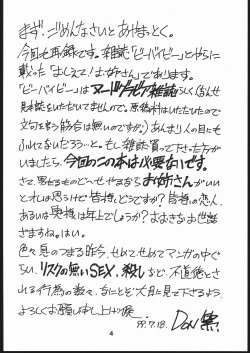 まず、ごめんなさいとあやまっとく。
今回も再録です。雑誌「ビーバイビー」とやらに
載った「ましょユ!お姉さん」であります。
「ビーバイビー」はヌードグラビア雑誌らしく(なんせ
見本誌をいただいてませんので。原稿料はいただいたので
文句を言う筋合は無いのですが。)あんまり人の目にも
ふれてないだろう…と。もし雑誌買って下さった方が
いましたら、今回のこの本は必要ないです。
さて、寝るものど〜せやるならお姉さんがいい
とれは思うけど皆様、どうですか?皆様の恋人、
あるいは奥様は年上でしょうか?よおきなお世話
さますね。はい。
色々見のつまる昨今、せめて、せめてマンガの中ぐ
らい、リスクの無いSEX、殺しなど、不道徳とさ
れる行為の数々、なにとぞ大目に見て下さるよう、
よろしくお願い申し上げ候
'99.7.18.
4